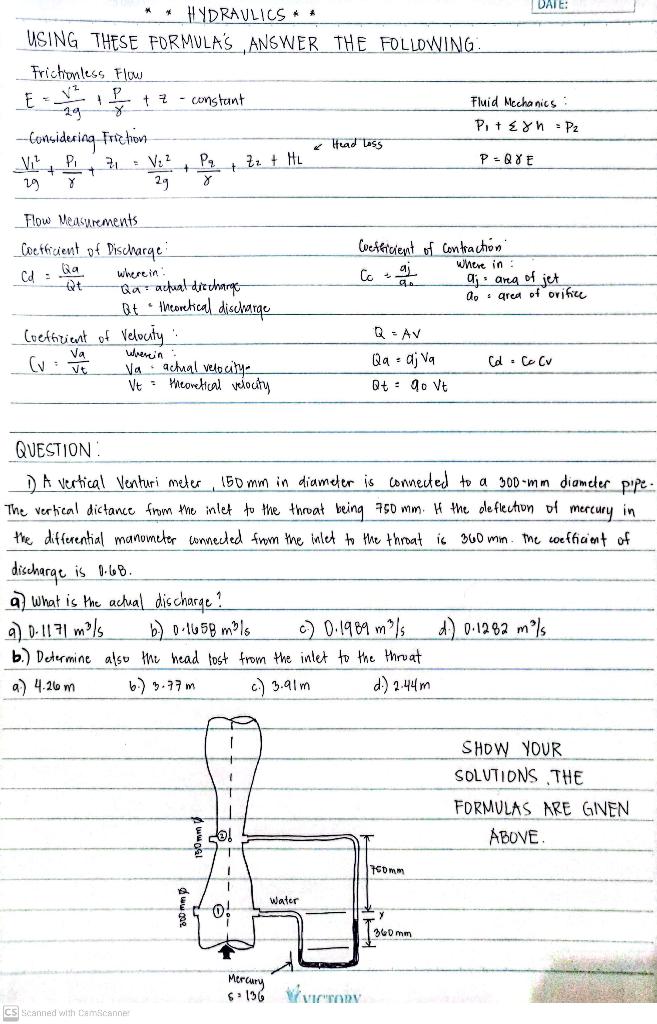 DATE:
* * HYDRAULICS * *
USING THESE FORMULA'S, ANSWER THE FOLLOWING:
Frictionless Flow
E = V²/2g + P/γ + z - constant
Fluid Mechanics :
P₁ + Σγh = P₂
Considering Friction
V₁²/2g + P₁/γ + z₁ = V₂²/2g + P₂/γ + z₂ + HL
Head Loss
P = QγE
Flow Measurements
Coefficient of Discharge :
Cd = Qa/Qt
wherein :
Qa = actual discharge
Qt = theoretical discharge
Coefficient of Contraction :
Cc = aj/ao
where in :
aj = area of jet
ao = area of orifice
Coefficient of Velocity :
Cv = Va/Vt
wherein :
Va = actual velocity
Vt = theoretical velocity
Q = AV
Qa = aj Va
Cd = Cc Cv
Qt = ao Vt
QUESTION :
1) A vertical Venturi meter, 150 mm in diameter is connected to a 300-mm diameter pipe.
The vertical dictance from the inlet to the throat being 750 mm. If the deflection of mercury in
the differential manometer connected from the inlet to the throat is 360 mm. The coefficient of
discharge is 0.68.
a) What is the actual discharge?
a) 0.1171 m³/s b.) 0.1658 m³/s c.) 0.1989 m³/s d.) 0.1282 m³/s
b.) Determine also the head lost from the inlet to the throat
a.) 4.26 m b.) 3.77 m c.) 3.91 m d.) 2.44 m
SHOW YOUR
SOLUTIONS, THE
FORMULAS ARE GIVEN
ABOVE.
150 mm Ø
②
750mm
300 mm Ø
①
Water
y
360 mm
Mercury
S = 136
VICTORY
CS Scanned with CamScanner